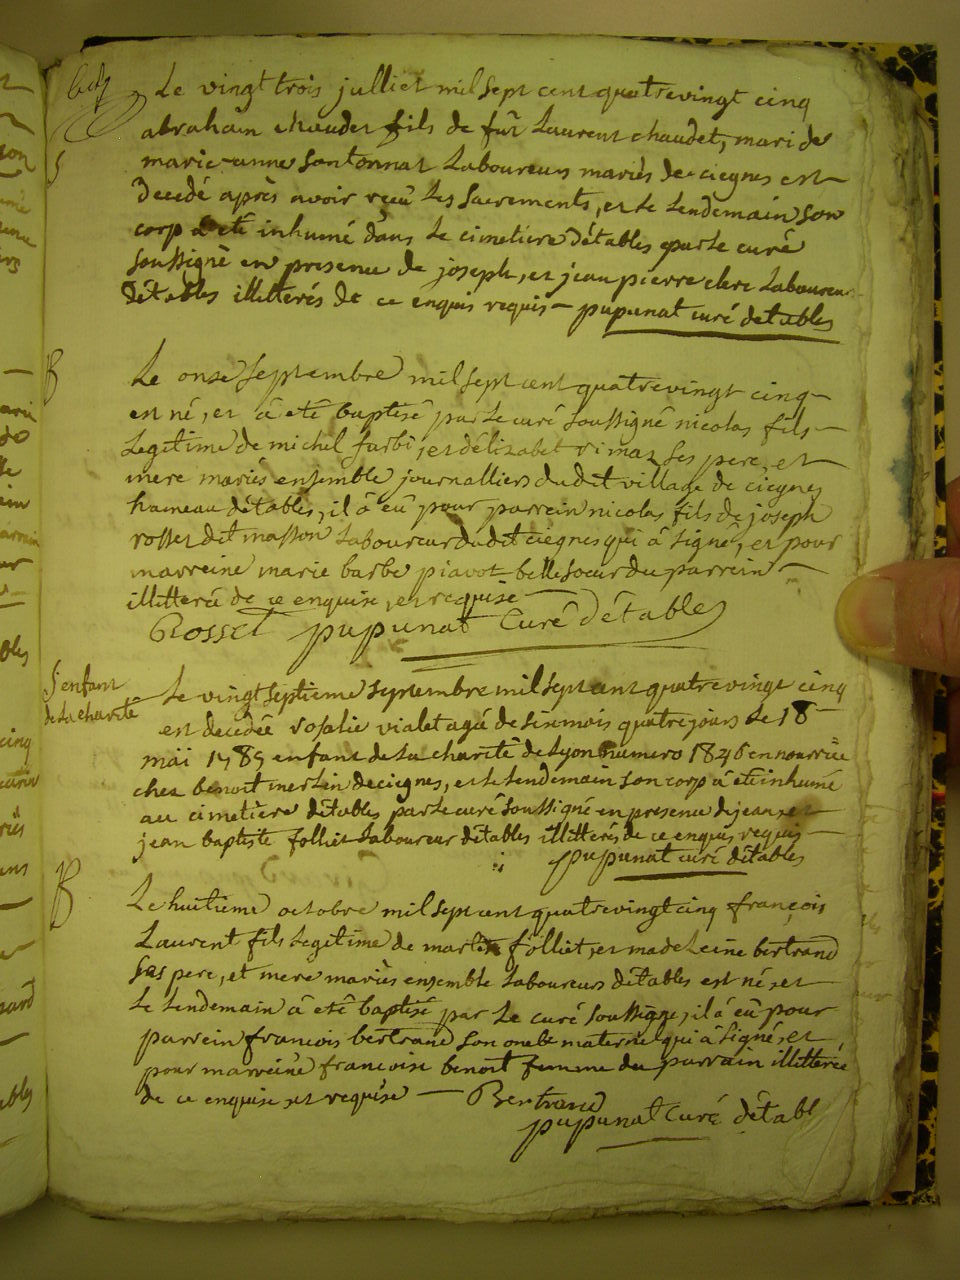 Le vingt trois julliet mil sept cent quatrevingt cinq
abraham chaudet fils de fût Laurent chaudet, mari de
marie-anne Santonnat Laboureurs mariés de ciegnes est
Decedé après avoir reçû les Sacrements, et le Lendemain son
corp a eté inhumé dans le cimetiere détables par le curé
soussigné en presence de joseph, et jean pierre clerc Laboureur
détables illitterés de ce enquis requis — pupunat curé detables
B
Le onze Septembre mil sept cent quatrevingt cinq
est né, et â eté baptisé par le curé soussigné nicolas fils
Legitime de michel farbi, et délizabet rimaz ses pere, et
mere mariés ensemble journalliers dudit village de ciegnes
hameau détables, il â eû pour parrein nicolas fils de joseph
rosset dit masson Laboureur dudit ciegnes qui â signé, et pour
marreine marie barbe piavot belle soeur du parrein
illitterée de ce enquise, et requise
Rosset pupunat Curé détables
S enfant
de la charité
Le vingt septieme septembre mil sept cent quatre vingt cinq
est decedée rosalie vialet agée de six mois quatre jours le 18
mäi 1785 enfant de la charité de Lyon numero 1846 en nourrice
chez benoit merlin de ciegnes, et le lendemain son corp â eté inhumé
au cimetière détables par le curé soussigné en presence de jean, et
jean baptiste folliet Laboureur détables illitterés de ce enquis requis
pupunat curé détables
B
Le huitieme octobre mil sept cent quatrevingt cinq françois
Laurent fils Legitime de martin folliet, et madeleine bertrand
ses pere, et mere mariés ensemble Laboureurs détables est né, et
le lendemain â eté baptisé par le curé soussigné, il â eû pour
parrein francois bertrand son oncle maternel qui â signé, et
pour marreine francoise benoit femme du parrain illitterée
de ce enquise, et requise — Bertrand
pupunat Curé détabl